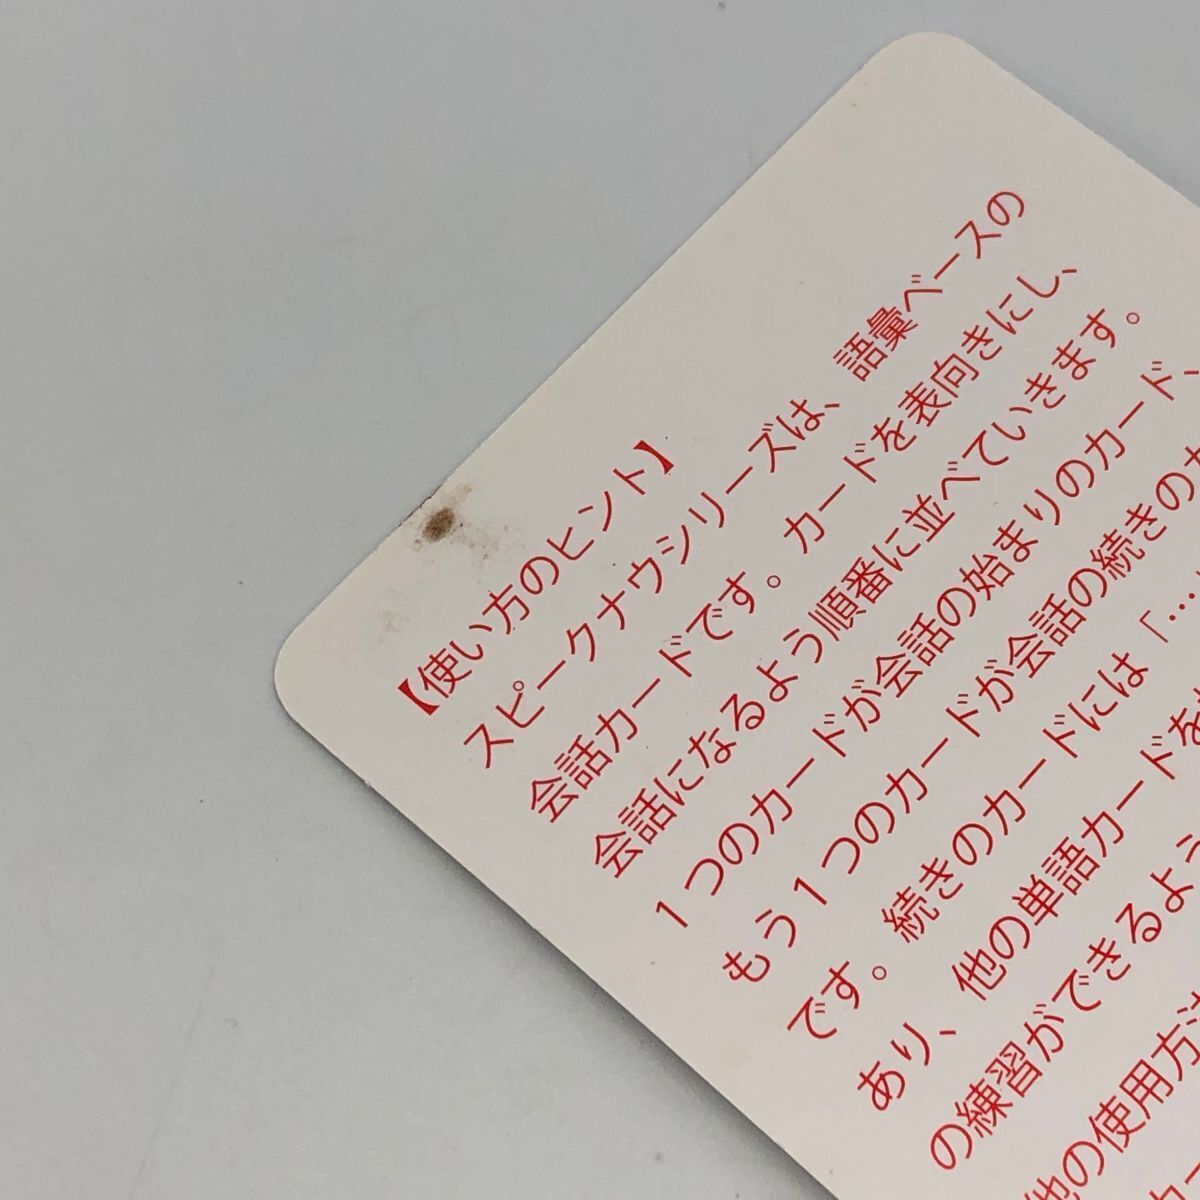 【使い方のヒント】
スピークナウシリーズは、語彙ベースの
会話カードです。カードを表向きにし、
会話になるよう順番に並べていきます。
1つのカードが会話の始まりのカード、
もう1つのカードが会話の続きのカ
です。続きのカードには「…
あり、他の単語カードを
の練習ができるよう
他の使用方法
カー